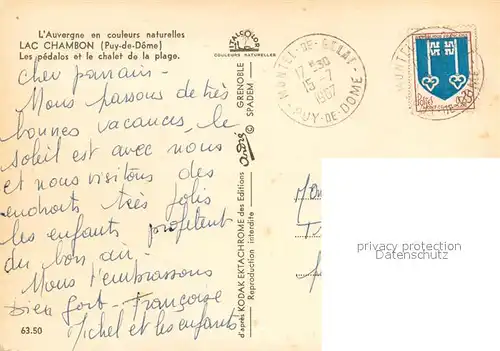 L'Auvergne en couleurs naturelles
LAC CHAMBON (Puy-de-Dôme)
Les pédalos et le chalet de la plage.
ITALCOLOR
COULEURS NATURELLES
MONTEL-DE-GELAT
17 H 30
15-7
1967
PUY-DE-DOME
Cher parrain -
Nous passons de très
bonnes vacances, le
soleil est avec nous
et nous visitons des
endroits très jolis
les enfants profitent
du bon air -
Nous t'embrassons
bien fort - Françoise
Michel et les enfants
63.50
d'après KODAK EKTACHROME des Editions André © GRENOBLE
Reproduction interdite SPADEM
privacy protection
Datenschutz